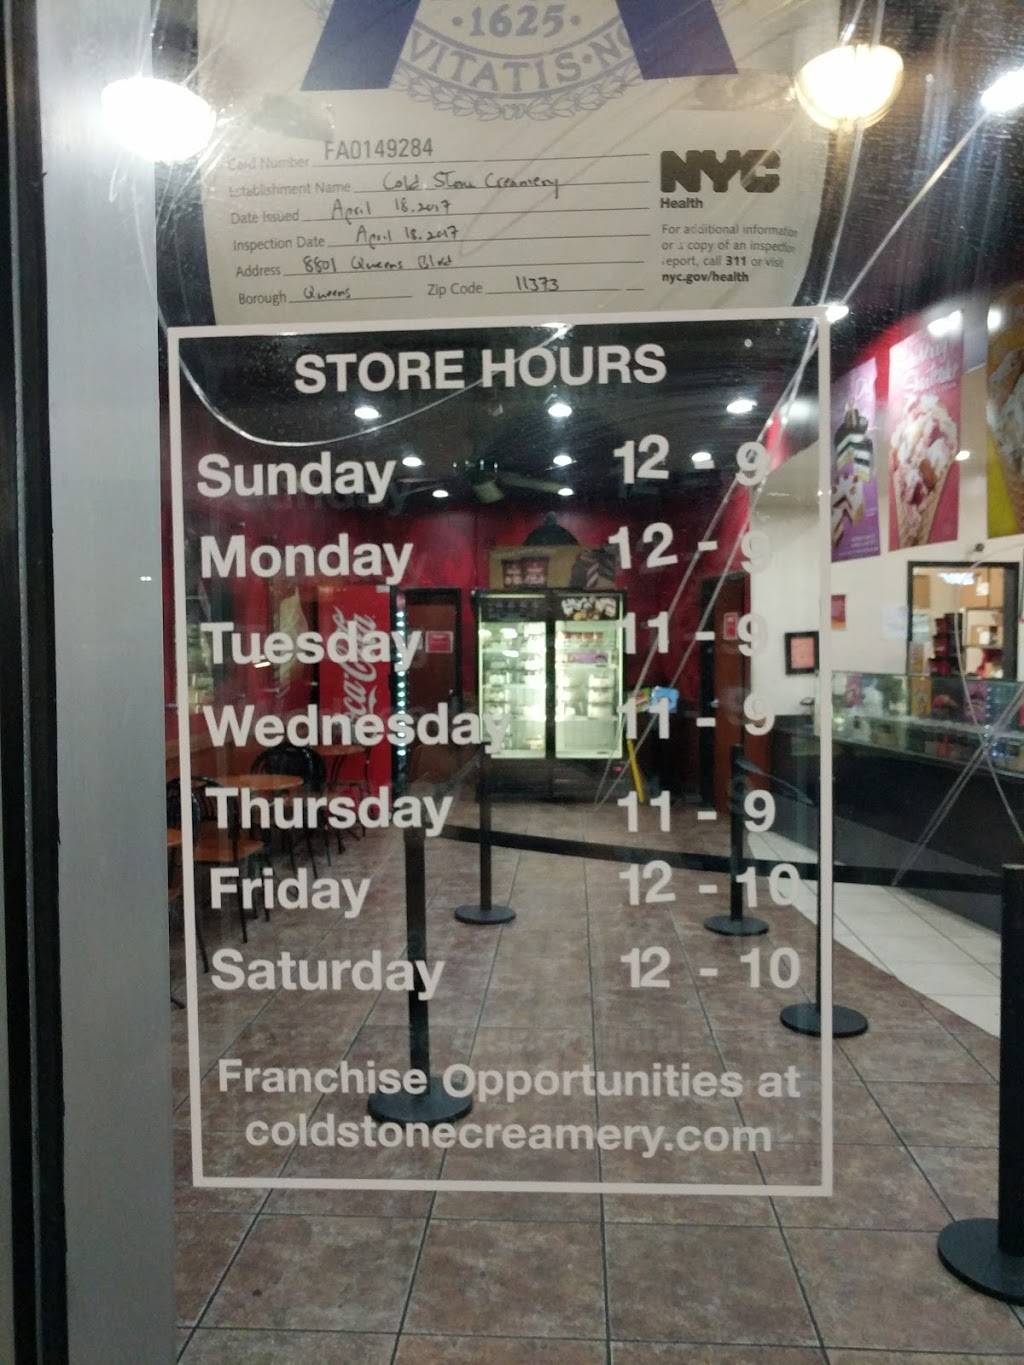 · 1625 ·
VITATIS · NO
Card Number FA0149284
Establishment Name Cold Stone Creamery
Date Issued April 18. 2017
Inspection Date April 18. 2017
Address 8801 Queens Blvd
Borough Queens Zip Code 11373
NYC
Health
For additional information
or a copy of an inspection
report, call 311 or visit
nyc.gov/health
STORE HOURS
Sunday 12 - 9
Monday 12 - 9
Tuesday 11 - 9
Wednesday 11 - 9
Thursday 11 - 9
Friday 12 - 10
Saturday 12 - 10
Franchise Opportunities at
coldstonecreamery.com
Coca-Cola